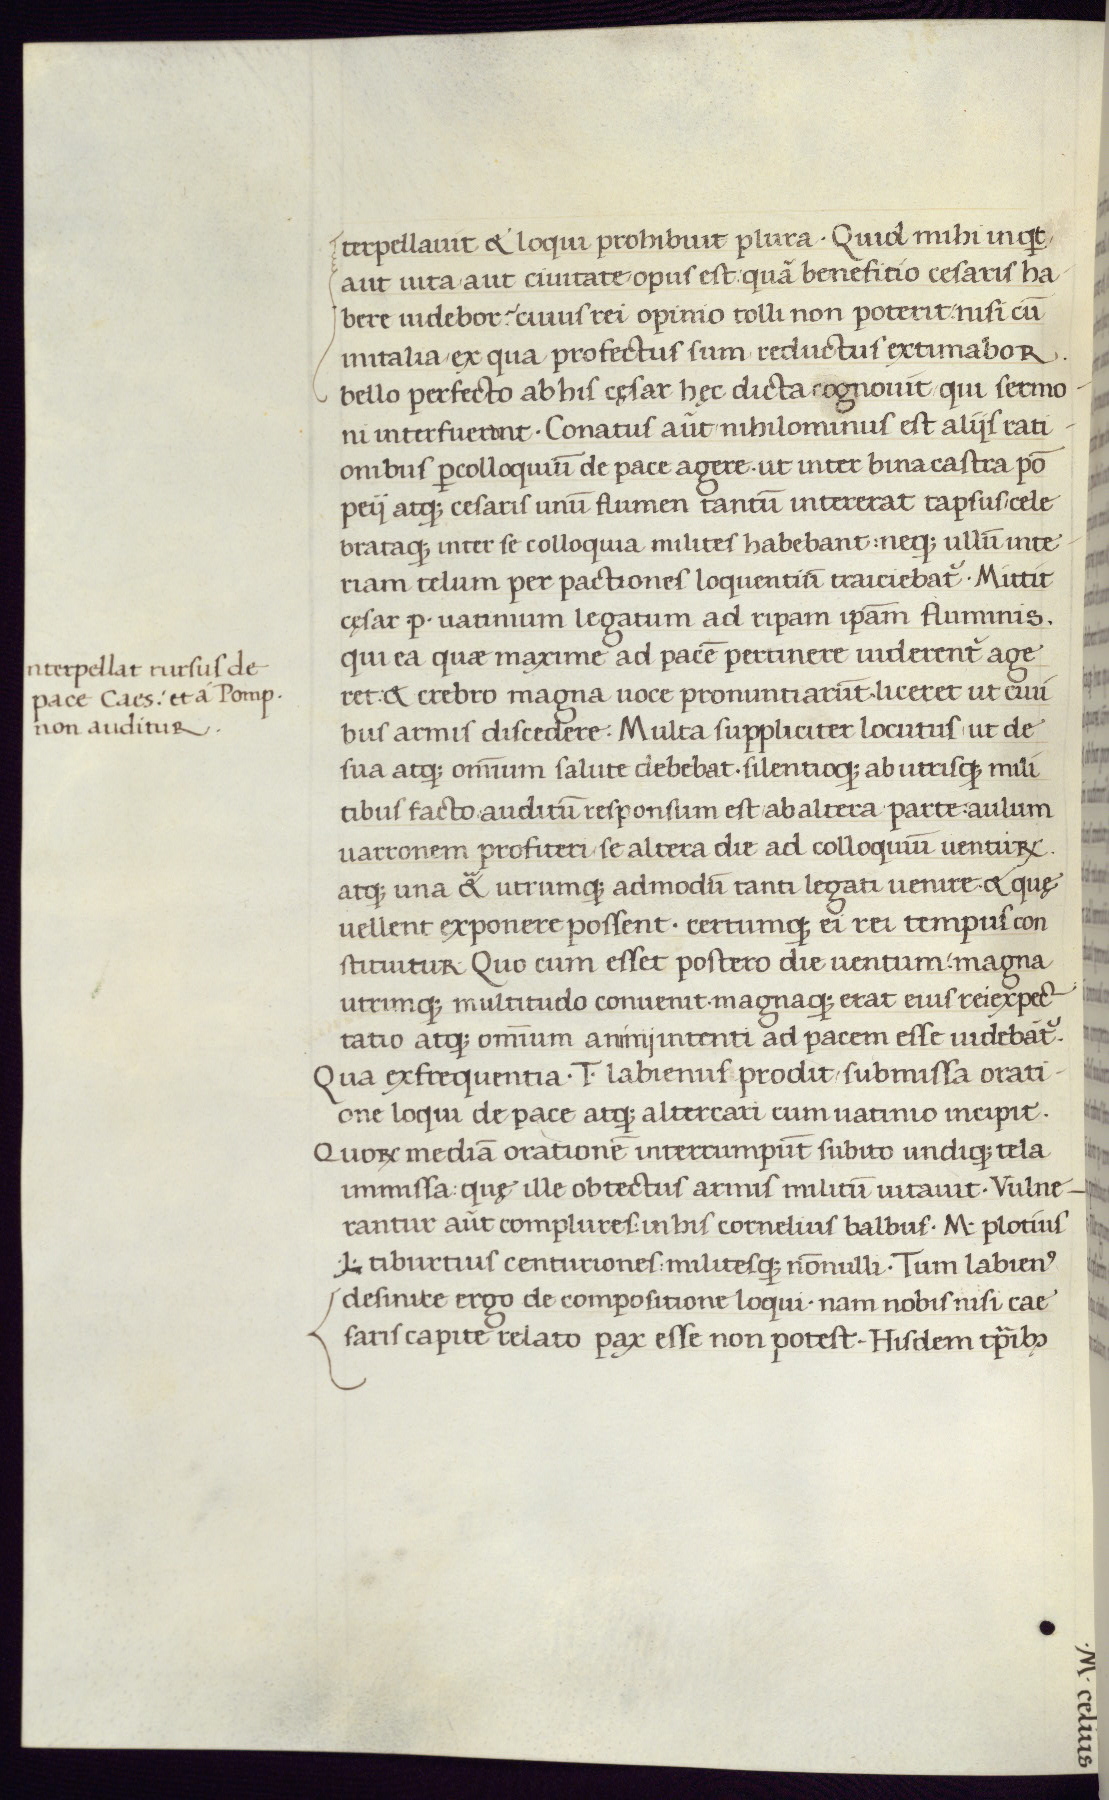 terpellauit & loqui prohibuit plura · Quid mihi inqt
aut uita aut ciuitate opus est: quā benefitio cesaris ha
bere uidebor: cuius rei opinio tolli non poterit: nisi cū
initalia ex qua profectus sum reductus extimaboR.
bello perfecto ab his cęsar hęc dicta cognouit qui sermo
ni interfuerunt · Conatus aūt nihilominus est alijs rati
onibus ꝑ colloquiū de pace agere · ut inter bina castra pō
peij atq; cesaris unū flumen tantū intererat tapsus cele
brataq; inter se colloquia milites habebant: neq; ullū inte
riam telum per pactiones loquentiū traiciebat᷑ · Mittit
cęsar p· uatinium legatum ad ripam ipām fluminis.
qui ea quæ maxime ad pacē pertinere uiderent᷑ age
ret: & crebro magna uoce pronuntiarūt liceret ut ciui
bus armis discedere: Multa suppliciter locutus ut de
sua atq; om̄ium salute debebat · silentioq; ab utrisq; mili
tibus facto auditū responsum est ab altera parte: aulum
uarronem profiteri se altera die ad colloquiū uentuꝝ.
atq; una &̃ utrumq; admodū tanti legati uenire · & quę
uellent exponere possent · certumq; ei rei tempus con
stituituR Quo cum esset postero die uentum: magna
utrinq; multitudo conuenit · magnaq; erat eius rei expec
tatio atq; om̄ium animij intenti ad pacem esse uidebāt᷑.
Qua ex frequentia · T· labienus prodit submissa orati
one loqui de pace atq; altercari cum uatinio incipit.
Quoꝝ mediā orationē interrumpūt subito undiq; tela
immissa: quę ille obtectus armis militū uitauit · Vulne
rantur aūt complures: in his cornelius balbus · M· plotius
·L· tiburtius centuriones: militesq; nōnulli · Tum labienꝰ
desinite ergo de compositione loqui · nam nobis nisi cae
saris capite relato pax esse non potest - Hisdem tp̄ibꝫ
nterpellat rursus de
pace Caes: et á Pomp.
non audituR.
·M· celius